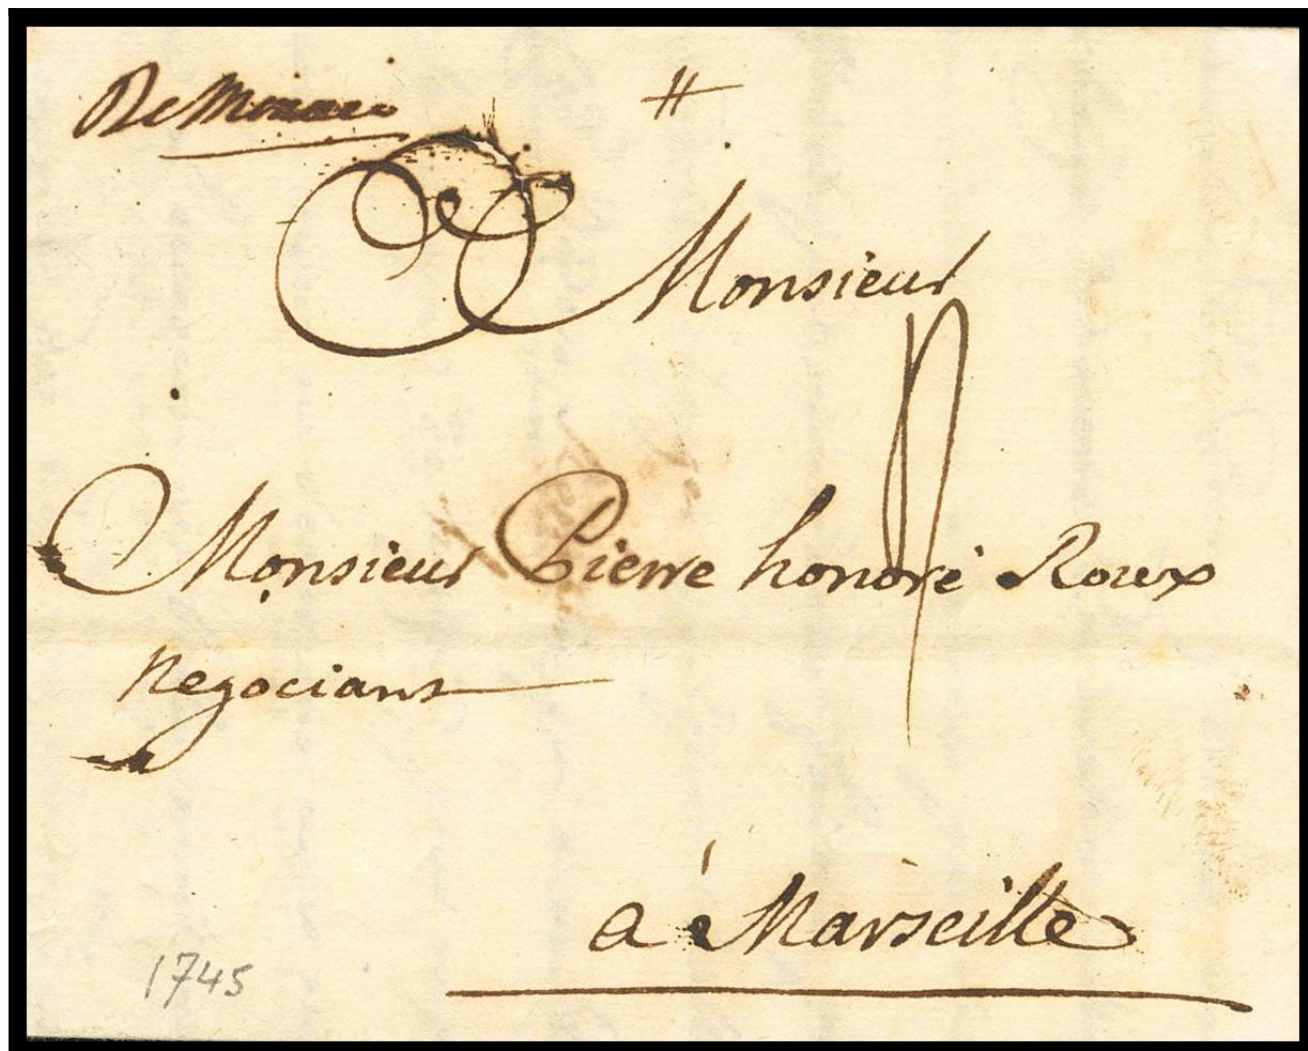 De Monaco
Monsieur
Monsieur Pierre honoré Roux
negociant
a Marseille
1745